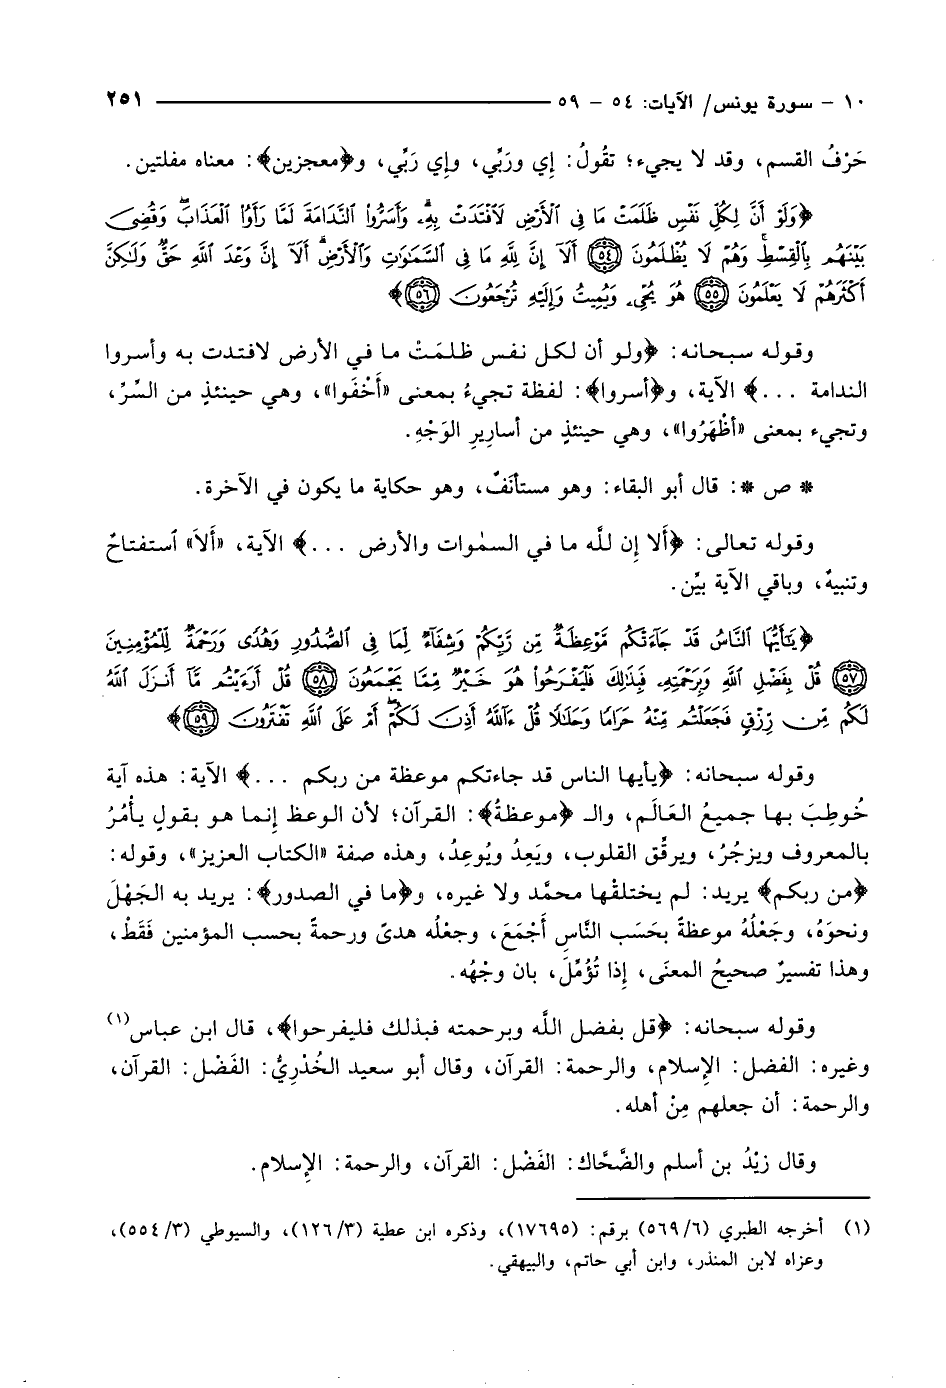 ١٠ - سورة يونس/ الآيات: ٥٤ - ٥٩ ٢٥١
حَرْفُ القسم، وقد لا يجيء؛ تقُولُ: إي ورَبِّي، وإي رَبِّي، و﴿معجزين﴾: معناه مفلتين.
﴿وَلَوْ أَنَّ لِكُلِّ نَفْسٍ ظَلَمَتْ مَا فِي ٱلْأَرْضِ لَٱفْتَدَتْ بِهِۦۗ وَأَسَرُّوا۟ ٱلنَّدَامَةَ لَمَّا رَأَوُا۟ ٱلْعَذَابَۖ وَقُضِىَ
بَيْنَهُم بِٱلْقِسْطِۚ وَهُمْ لَا يُظْلَمُونَ ﴿٥٤﴾ أَلَآ إِنَّ لِلَّهِ مَا فِى ٱلسَّمَٰوَٰتِ وَٱلْأَرْضِۗ أَلَآ إِنَّ وَعْدَ ٱللَّهِ حَقٌّ وَلَٰكِنَّ
أَكْثَرَهُمْ لَا يَعْلَمُونَ ﴿٥٥﴾ هُوَ يُحْىِۦ وَيُمِيتُ وَإِلَيْهِ تُرْجَعُونَ ﴿٥٦﴾﴾
وقوله سبحانه: ﴿ولو أن لكل نفس ظلمَتْ ما في الأرض لافتدت به وأسروا
الندامة ...﴾ الآية، و﴿أسروا﴾: لفظة تجيءُ بمعنى «أَخْفَوا»، وهي حينئذٍ من السِّرِّ،
وتجيء بمعنى «أظْهَرُوا»، وهي حينئذٍ من أسارِيرِ الوَجْهِ.
* ص *: قال أبو البقاء: وهو مستأنَفٌ، وهو حكاية ما يكون في الآخرة.
وقوله تعالى: ﴿أَلا إِن للَّه ما في السمٰوات والأرض ...﴾ الآية، «أَلاَ» ٱستفتاحٌ
وتنبيهٌ، وباقي الآية بيِّن.
﴿يَٰٓأَيُّهَا ٱلنَّاسُ قَدْ جَآءَتْكُم مَّوْعِظَةٌ مِّن رَّبِّكُمْ وَشِفَآءٌ لِّمَا فِى ٱلصُّدُورِ وَهُدًى وَرَحْمَةٌ لِّلْمُؤْمِنِينَ
﴿٥٧﴾ قُلْ بِفَضْلِ ٱللَّهِ وَبِرَحْمَتِهِۦ فَبِذَٰلِكَ فَلْيَفْرَحُوا۟ هُوَ خَيْرٌ مِّمَّا يَجْمَعُونَ ﴿٥٨﴾ قُلْ أَرَءَيْتُم مَّآ أَنزَلَ ٱللَّهُ
لَكُم مِّن رِّزْقٍ فَجَعَلْتُم مِّنْهُ حَرَامًا وَحَلَٰلًا قُلْ ءَآللَّهُ أَذِنَ لَكُمْۖ أَمْ عَلَى ٱللَّهِ تَفْتَرُونَ ﴿٥٩﴾﴾
وقوله سبحانه: ﴿يأيها الناس قد جاءتكم موعظة من ربكم ...﴾ الآية: هذه آية
خُوطِبَ بها جميعُ العَالَم، والـ ﴿موعظةُ﴾: القرآن؛ لأن الوعظ إنما هو بقولٍ يأْمُرُ
بالمعروف ويزجُرُ، ويرقِّق القلوب، ويَعِدُ ويُوعِدُ، وهذه صفة «الكتاب العزيز»، وقوله:
﴿من ربكم﴾ يريد: لم يختلقْها محمَّد ولا غيره، و﴿ما في الصدور﴾: يريد به الجَهْلَ
ونحوَهُ، وجَعْلُهُ موعظةً بحَسَب النَّاسِ أَجْمَعَ، وجعْلُه هدىً ورحمةً بحسب المؤمنين فَقَطْ،
وهذا تفسيرٌ صحيحُ المعنَى، إِذا تُؤُمِّلَ، بان وجْهُه.
وقوله سبحانه: ﴿قل بفضل اللَّه وبرحمته فبذلك فليفرحوا﴾، قال ابن عباس(١)
وغيره: الفضل: الإسلام، والرحمة: القرآن، وقال أبو سعيد الخُدْرِيُّ: الفَضْل: القرآن،
والرحمة: أن جعلهم مِنْ أهله.
وقال زيْدُ بن أسلم والضَّحَّاك: الفَضْل: القرآن، والرحمة: الإسلام.
(١) أخرجه الطبري (٦/ ٥٦٩) برقم: (١٧٦٩٥)، وذكره ابن عطية (٣/ ١٢٦)، والسيوطي (٣/ ٥٥٤)،
وعزاه لابن المنذر، وابن أبي حاتم، والبيهقي.